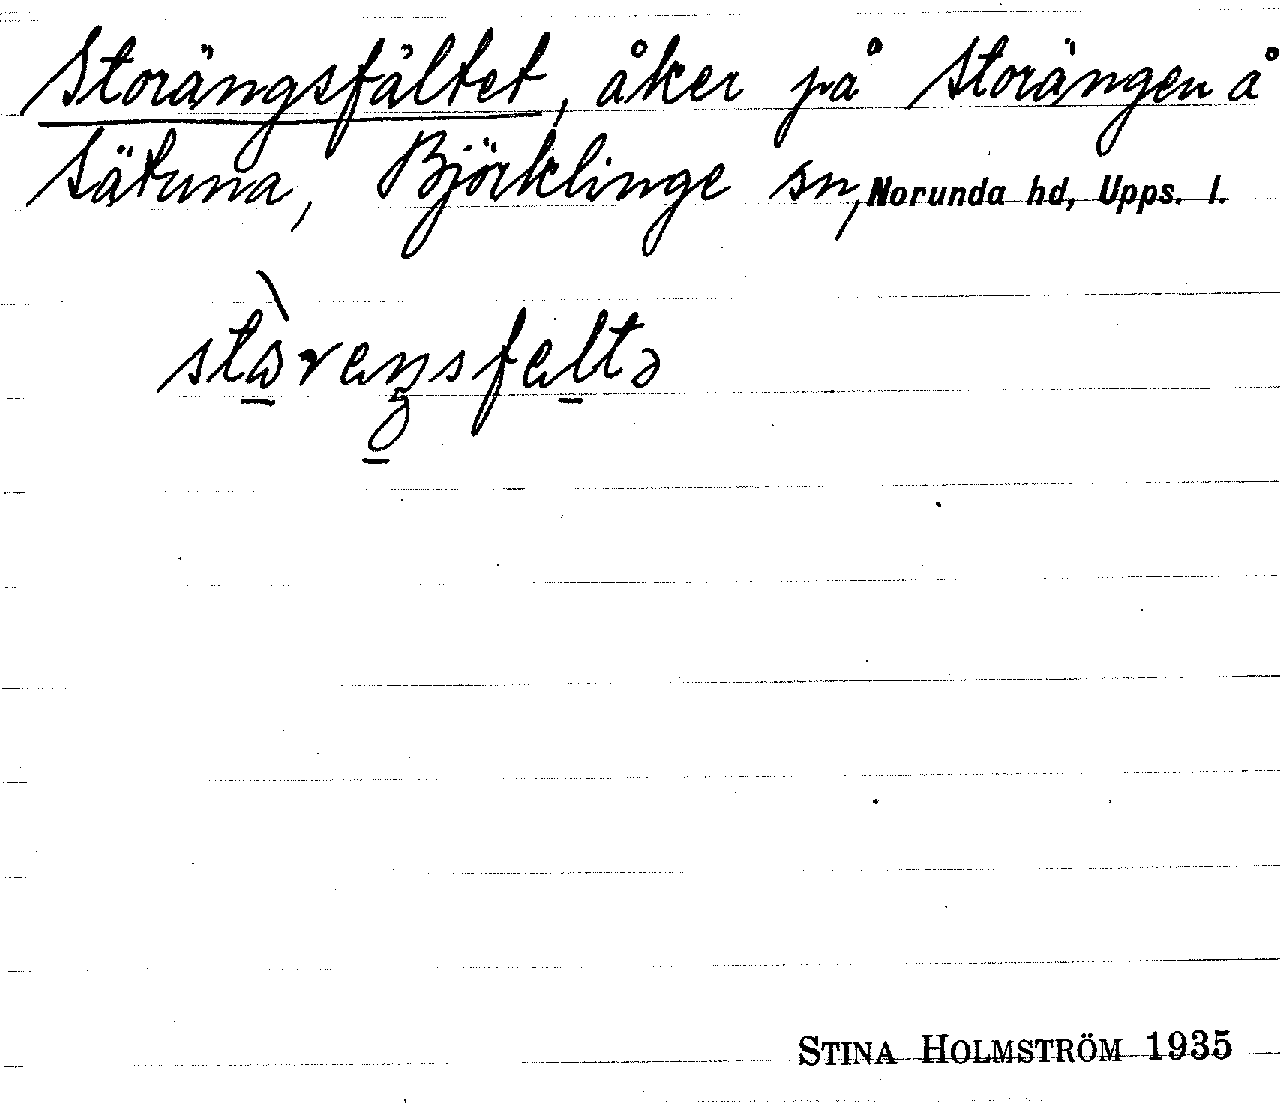 Storängsfältet, åker på Storängen å
Sätuna, Björklinge sn, Norunda hd, Upps. l.
STINA HOLMSTRÖM 1935